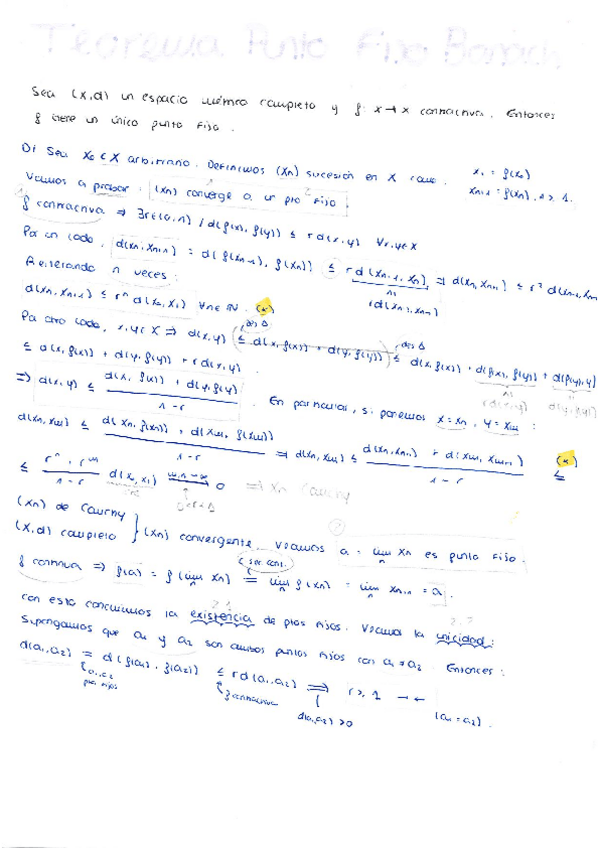 Teorema Punto Fijo Banach
Sea (X,d) un espacio métrico completo y f: X→X contractiva. Entonces
f tiene un único punto fijo.
D/ Sea x₀ ∈ X arbitrario. Definimos (xn) sucesión en X como x₁ = f(x₀)
xn+1 = f(xn), n ≥ 1.
Vamos a probar: (xn) converge a un pto fijo.
f contractiva ⇒ ∃r∈(0,1) / d(f(x), f(y)) ≤ r d(x,y) ∀x,y∈X
Por un lado, d(xn, xn+1) = d(f(xn-1), f(xn)) ≤ r d(xn-1, xn) ⇒ d(xn, xn+1) ≤ r² d(xn-2, xn-1)
Reiterando n veces:
d(xn, xn+1) ≤ rⁿ d(x₀, x₁) ∀n∈ℕ. (*)
Por otro lado, x,y∈X ⇒ d(x,y) ≤ d(x, f(x)) + d(y, f(y)) ≤ d(x, f(x)) + d(f(x), f(y)) + d(f(y), y)
≤ d(x, f(x)) + d(y, f(y)) + r d(x,y).
⇒ d(x,y) ≤ d(x, f(x)) + d(y, f(y)) / 1-r . En particular, si ponemos x = xn, y = xm :
d(xn, xm) ≤ d(xn, f(xn)) + d(xm, f(xm)) / 1-r ⇒ d(xn, xm) ≤ d(xn, xn+1) + d(xm, xm+1) / 1-r (*) ≤
≤ rⁿ + rᵐ / 1-r d(x₀, x₁) n,m→∞ → 0 ⇒ xn Cauchy
0<r<1
(xn) de Cauchy
(X,d) completo } (xn) convergente. Veamos a = lim xn es punto fijo.
f continua ⇒ f(a) = f(lim xn) = lim f(xn) = lim xn+1 = a.
con esto concluimos la existencia de ptos fijos. Veamos la unicidad:
Supongamos que a₁ y a₂ son ambos puntos fijos con a₁ ≠ a₂. Entonces:
d(a₁, a₂) = d(f(a₁), f(a₂)) ≤ r d(a₁, a₂) ⇒ r ≥ 1 →←
a₁, a₂ ptos fijos
f contractiva
d(a₁,a₂) > 0
(a₁ = a₂).